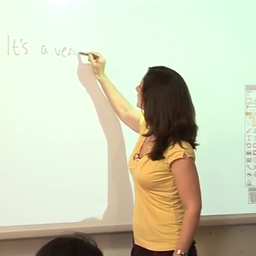 It's a ver